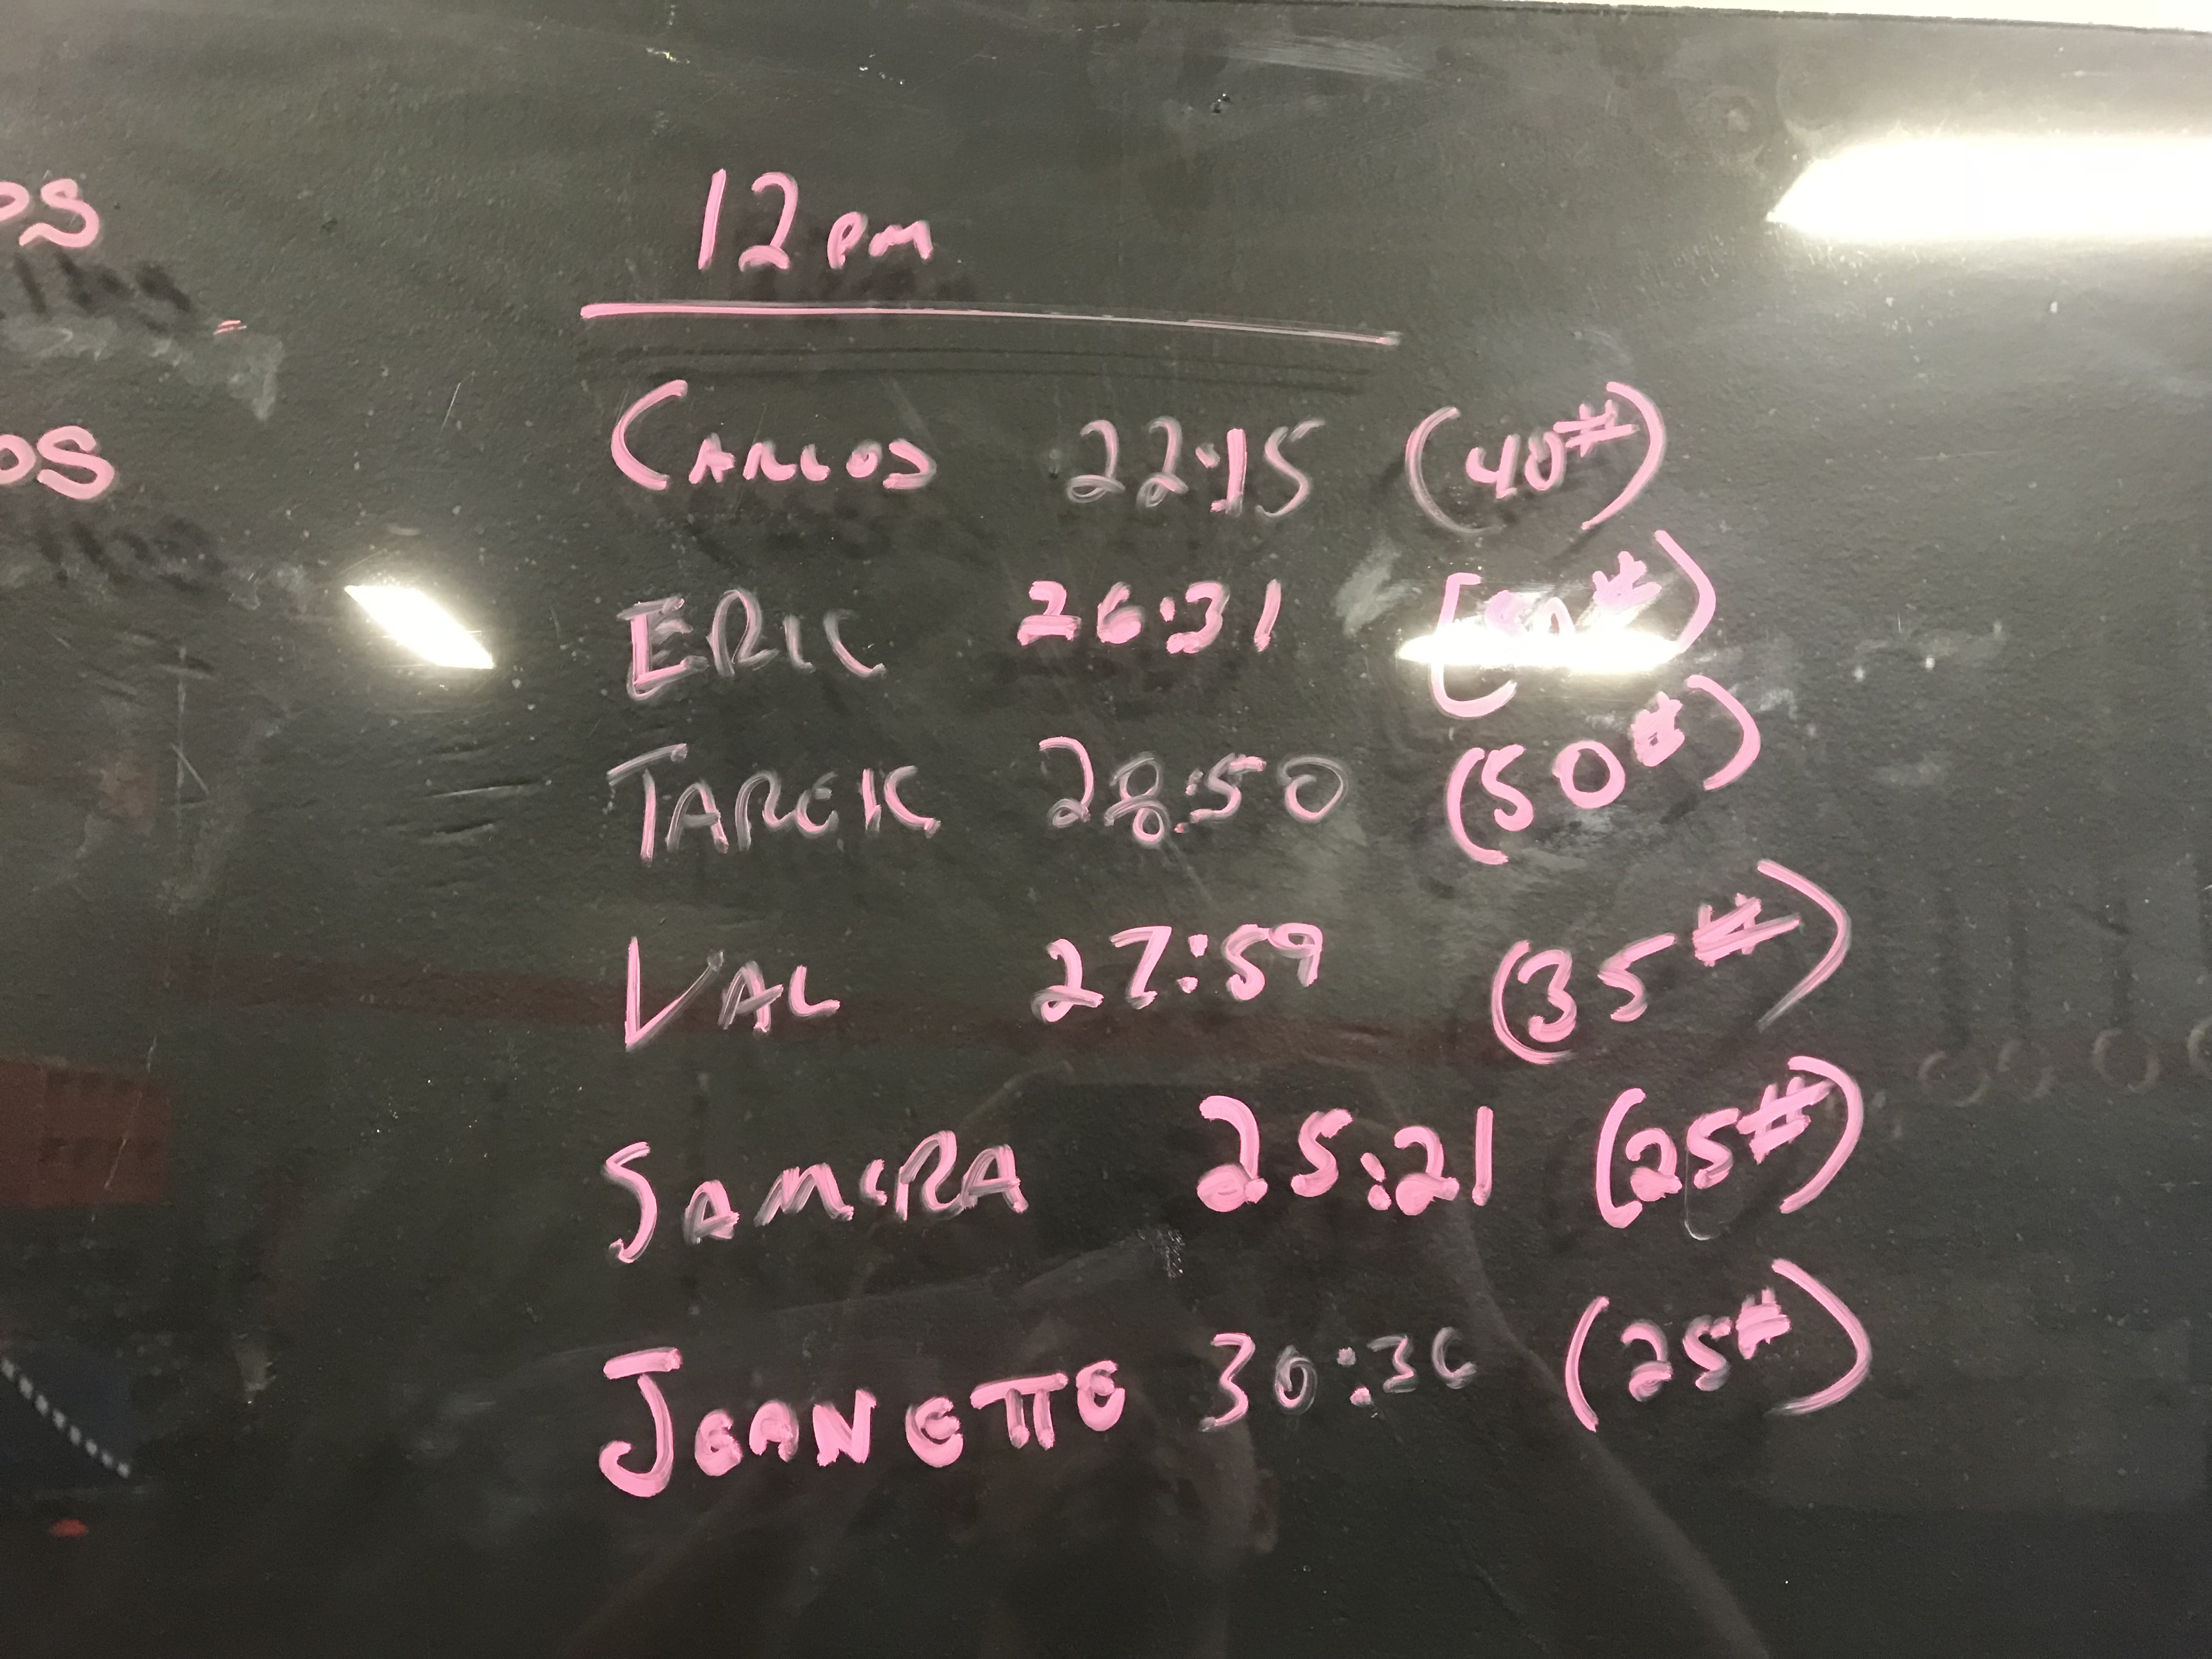 12 pm
CARLOS 22:15 (40#)
ERIC 26:31 (50#)
TAREK 28:50 (50#)
VAL 27:59 (35#)
SAMERA 25:21 (25#)
JEANETTE 30:30 (25#)